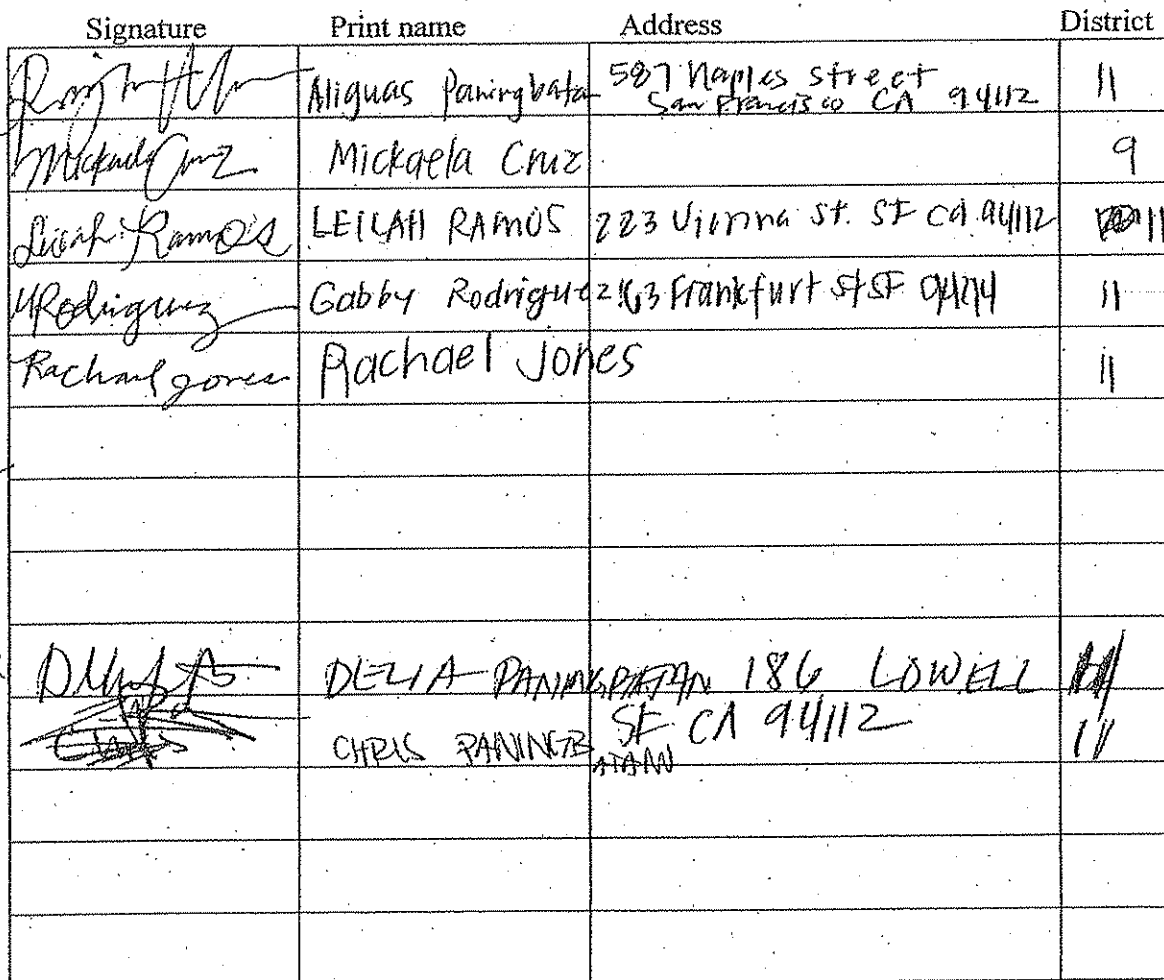 Signature Print name Address District
Aliguas Paningbatan 587 Naples Street 11
San Francisco CA 94112
Mickaela Cruz Mickaela Cruz 9
Leilah Ramos LEILAH RAMOS 223 Vienna St. SF Ca 94112 11
Rodriguez Gabby Rodriguez 163 Frankfurt St SF 11
Rachael Jones Rachael Jones 11
DELIA PANINGBATAN 186 LOWELL
SF CA 94112
CHRIS PANINGB 11
ATANN